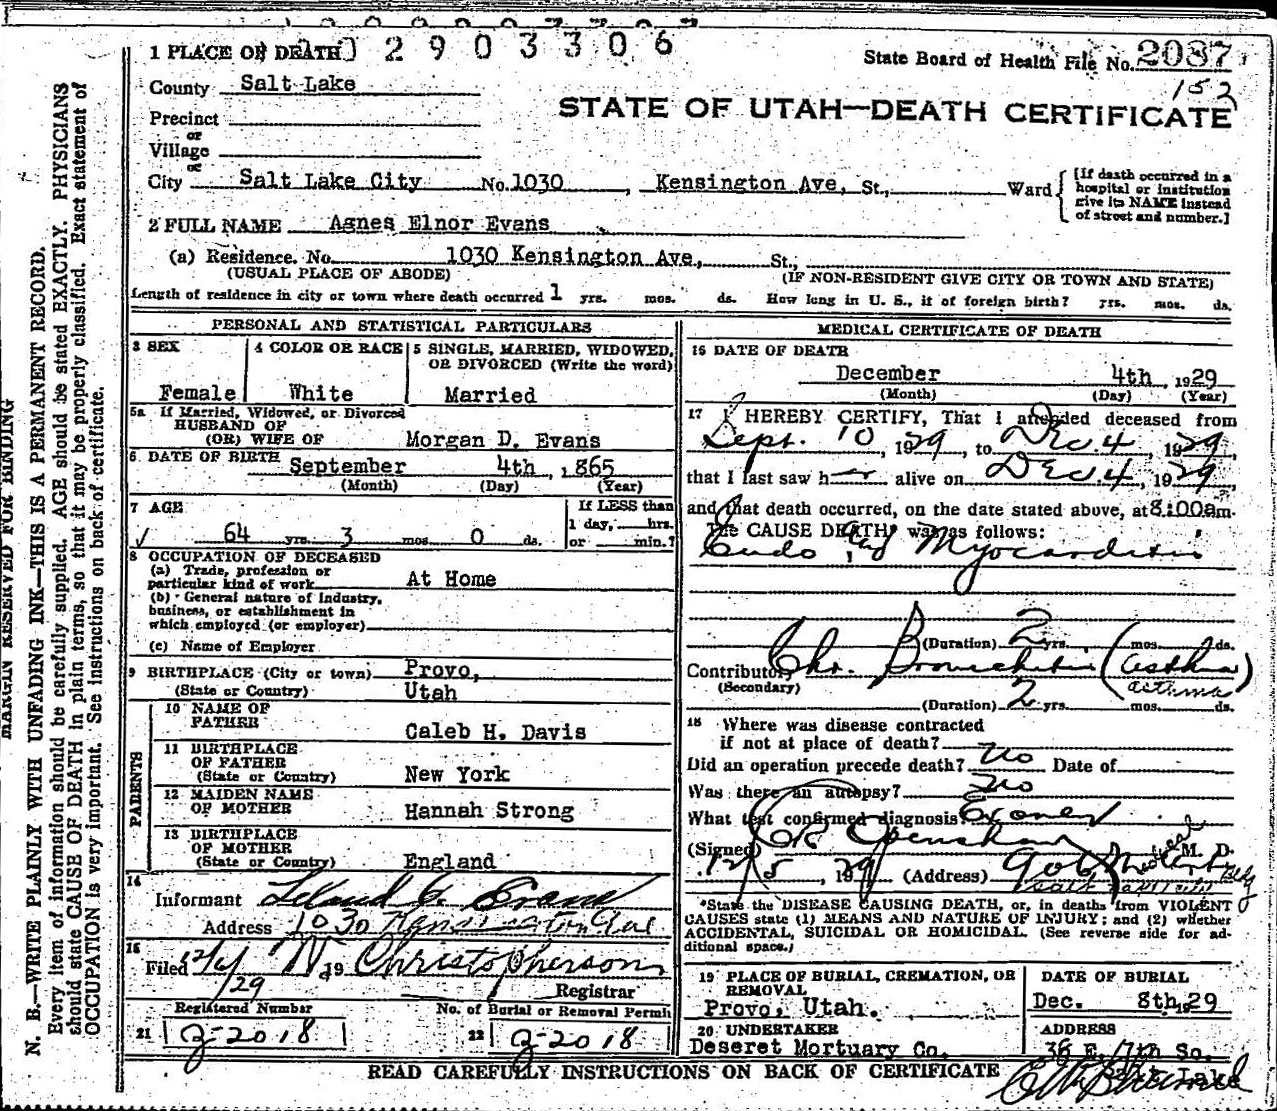 0 2 9 0 3 3 0 6
1 PLACE OF DEATH
State Board of Health File No. 2087
152
County Salt Lake
STATE OF UTAH—DEATH CERTIFICATE
Precinct
or
Village
or
City Salt Lake City No. 1030, Kensington Ave, St., Ward
[If death occurred in a hospital or institution give its NAME instead of street and number.]
2 FULL NAME Agnes Elnor Evans
(a) Residence. No. 1030 Kensington Ave, St.,
(USUAL PLACE OF ABODE) (IF NON-RESIDENT GIVE CITY OR TOWN AND STATE)
Length of residence in city or town where death occurred 1 yrs. mos. ds. How long in U. S., if of foreign birth? yrs. mos. ds.
PERSONAL AND STATISTICAL PARTICULARS
3 SEX
Female
4 COLOR OR RACE
White
5 SINGLE, MARRIED, WIDOWED, OR DIVORCED (Write the word)
Married
5a If Married, Widowed, or Divorced
HUSBAND OF
(OR) WIFE OF Morgan D. Evans
6 DATE OF BIRTH September 4th, 1865
(Month) (Day) (Year)
7 AGE
64 yrs. 3 mos. 0 ds.
If LESS than
1 day, hrs.
or min.?
8 OCCUPATION OF DECEASED
(a) Trade, profession or
particular kind of work At Home
(b) General nature of industry,
business, or establishment in
which employed (or employer)
(c) Name of Employer
9 BIRTHPLACE (City or town) Provo,
(State or Country) Utah
PARENTS
10 NAME OF
FATHER Caleb H. Davis
11 BIRTHPLACE
OF FATHER
(State or Country) New York
12 MAIDEN NAME
OF MOTHER Hannah Strong
13 BIRTHPLACE
OF MOTHER
(State or Country) England
14
Informant Leland G. Evans
Address 1030 Kensington Ave
15
Filed 12/6/29 19 Christopherson
Registrar
Registered Number
21 Z-2018
No. of Burial or Removal Permit
22 Z-2018
MEDICAL CERTIFICATE OF DEATH
16 DATE OF DEATH
December 4th, 1929
(Month) (Day) (Year)
17 I HEREBY CERTIFY, That I attended deceased from
Sept. 10, 1929, to Dec 4, 1929,
that I last saw h er alive on Dec. 4, 1929,
and that death occurred, on the date stated above, at 8:00am.
The CAUSE DEATH was as follows:
Endo and Myocarditis
(Duration) 2 yrs. mos. ds.
Contributory Chr. Bronchitis (asthma)
(Secondary) asthma
(Duration) 2 yrs. mos. ds.
18 Where was disease contracted
if not at place of death?
Did an operation precede death? No Date of
Was there an autopsy? No
What test confirmed diagnosis
(Signed) Openshaw M. D.
12/5, 1929 (Address) Medical
*State the DISEASE CAUSING DEATH, or, in deaths from VIOLENT
CAUSES state (1) MEANS AND NATURE OF INJURY; and (2) whether
ACCIDENTAL, SUICIDAL OR HOMICIDAL. (See reverse side for additional space.)
19 PLACE OF BURIAL, CREMATION, OR REMOVAL
Provo, Utah.
DATE OF BURIAL
Dec. 8th, 1929
20 UNDERTAKER
Deseret Mortuary Co.
ADDRESS
36 E. 7th So.
Lake
READ CAREFULLY INSTRUCTIONS ON BACK OF CERTIFICATE
MARGIN RESERVED FOR BINDING
N. B.—WRITE PLAINLY WITH UNFADING INK—THIS IS A PERMANENT RECORD.
Every item of information should be carefully supplied. AGE should be stated EXACTLY. PHYSICIANS
should state CAUSE OF DEATH in plain terms, so that it may be properly classified. Exact statement of
OCCUPATION is very important. See instructions on back of certificate.